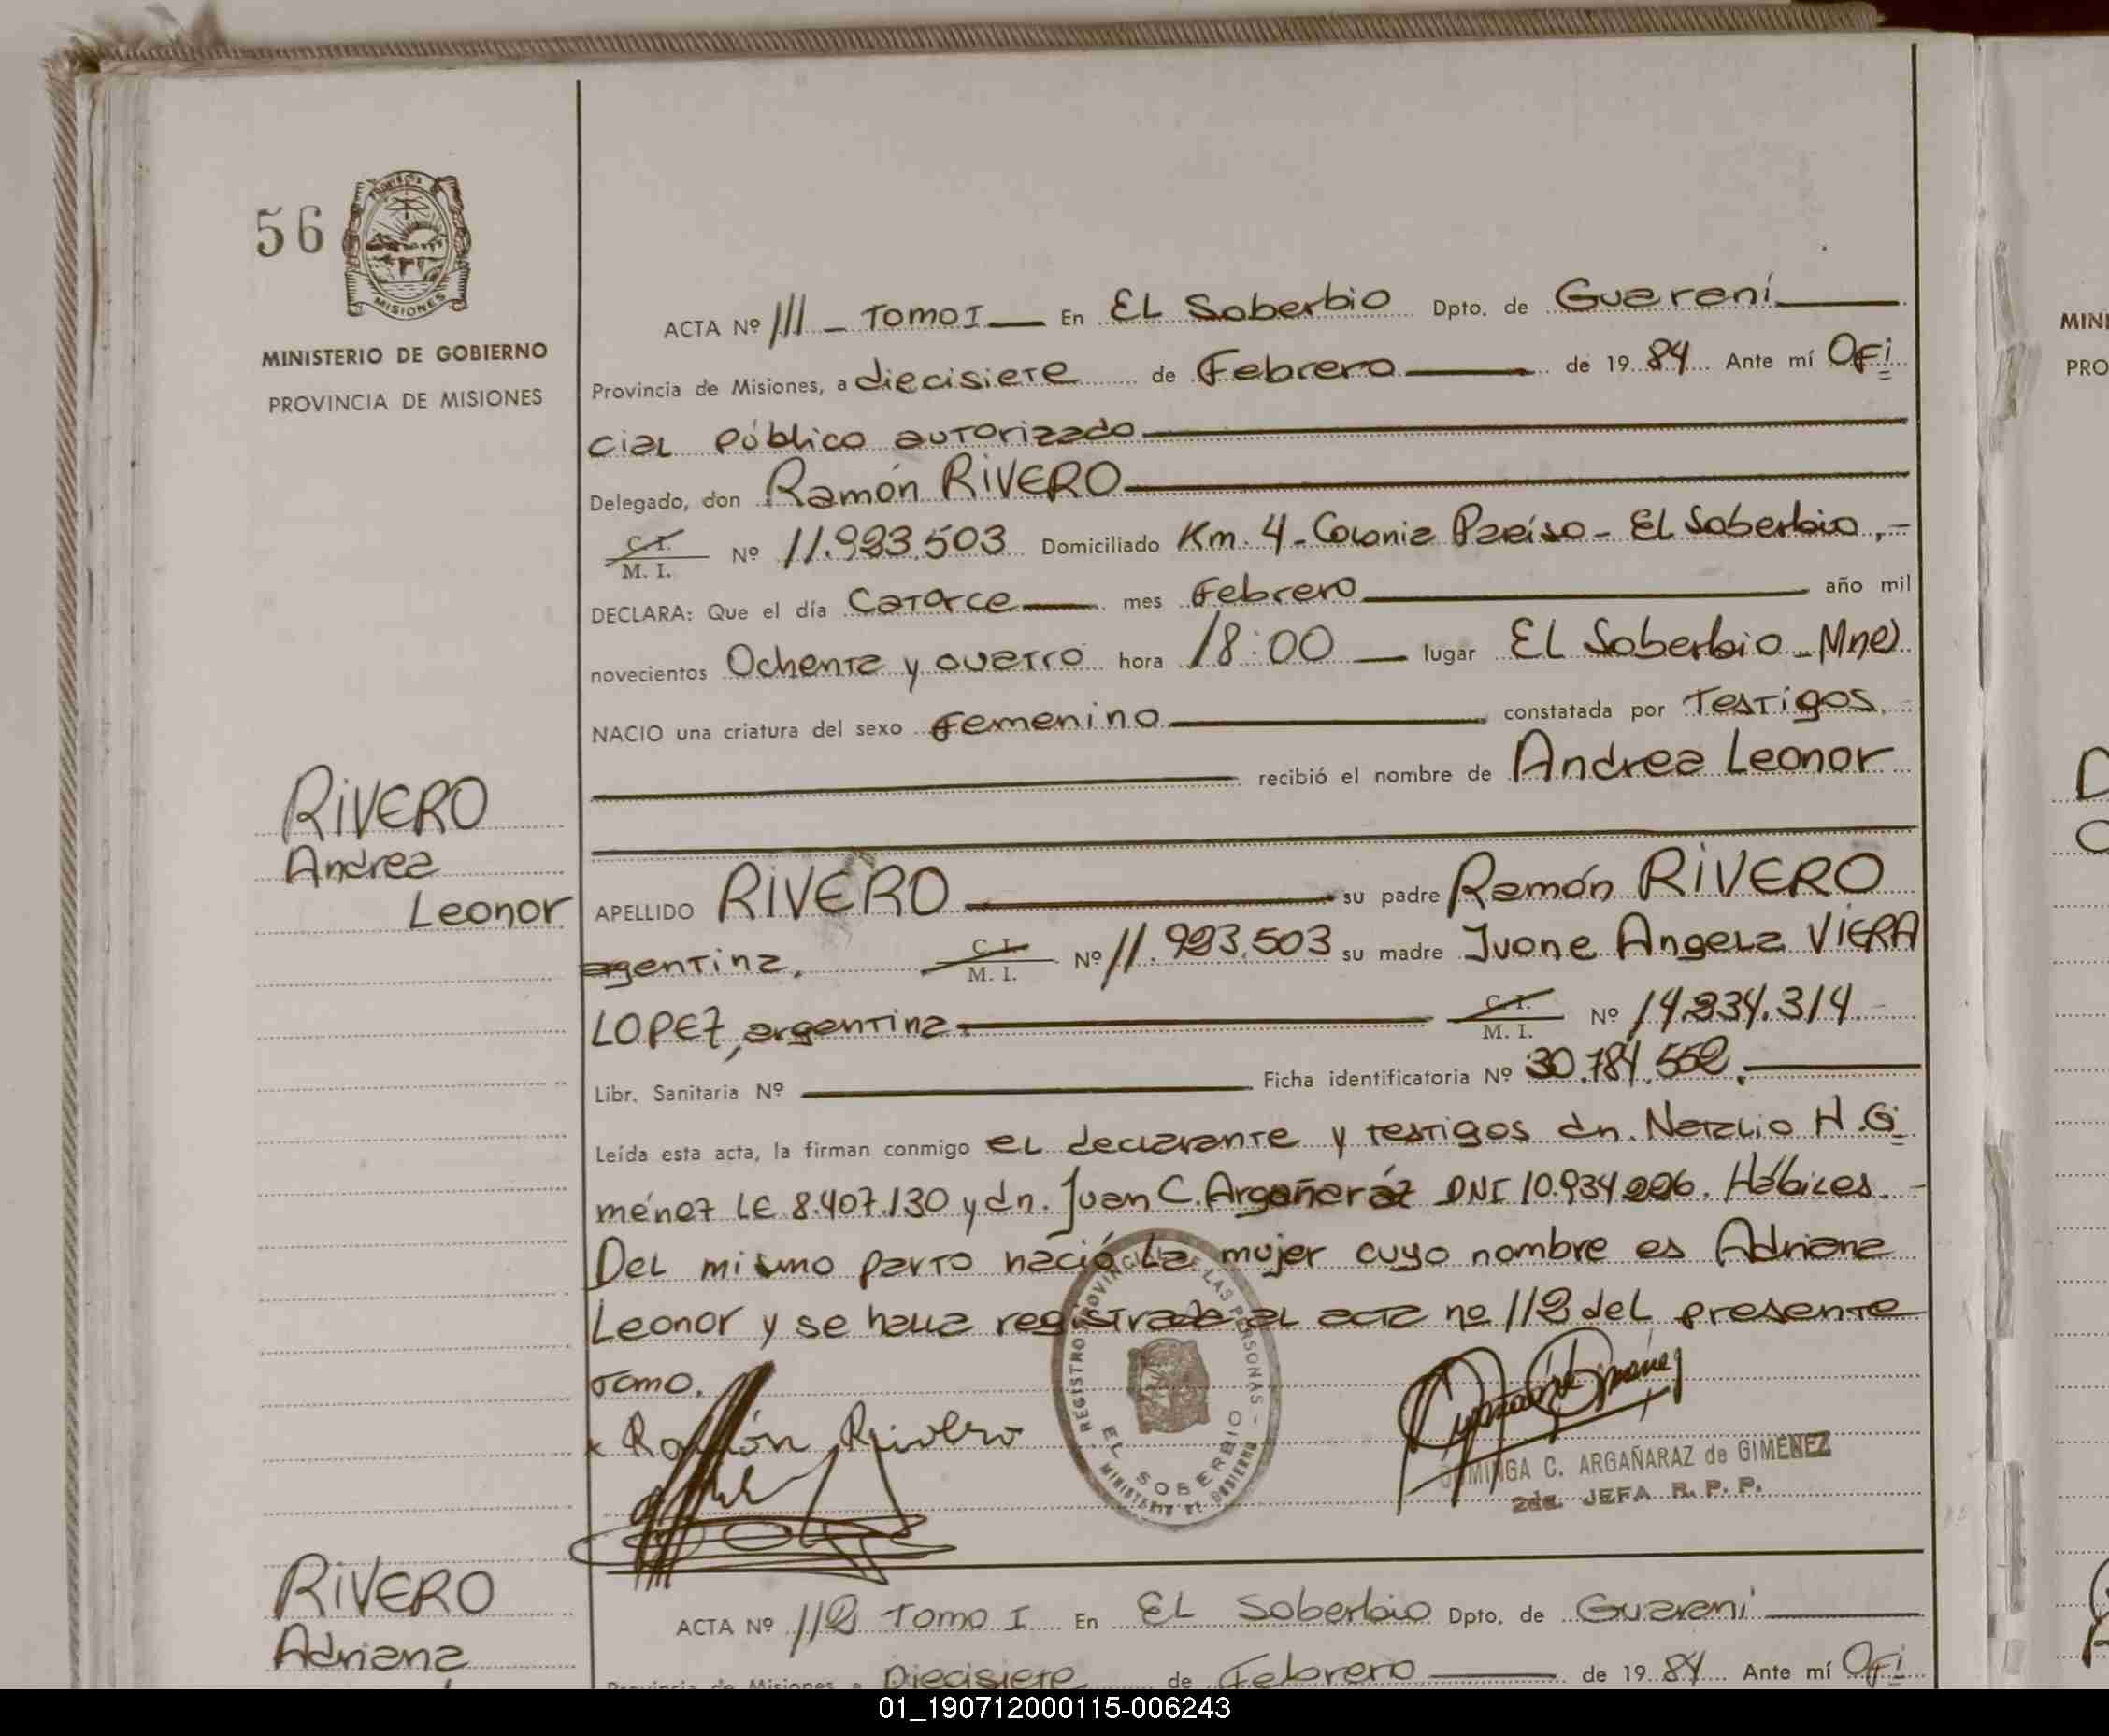 56
MISIONES
MINISTERIO DE GOBIERNO
PROVINCIA DE MISIONES
ACTA Nº 111 - Tomo I — En El Soberbio Dpto. de Guaraní
Provincia de Misiones, a diecisiete de Febrero de 1984 Ante mí Ofi
cial público autorizado
Delegado, don Ramón RIVERO
C. I. M. I. Nº 11.993.503 Domiciliado Km. 4 - Colonia Paraíso - El Soberbio,-
DECLARA: Que el día Catorce mes Febrero año mil
novecientos Ochenta y cuatro hora 18:00 lugar El Soberbio - Mnes
NACIO una criatura del sexo Femenino constatada por Testigos.-
recibió el nombre de Andrea Leonor
RIVERO
Andrea
Leonor
APELLIDO RIVERO su padre Ramón RIVERO
argentina. C. I. M. I. Nº 11.993.503 su madre Ivone Angela VIERA
LOPEZ, argentina C. I. M. I. Nº 14.234.314.-
Libr. Sanitaria Nº Ficha identificatoria Nº 30.784.552.
Leída esta acta, la firman conmigo el declarante y testigos dn. Natalio H. Gi
ménez LE 8.407.130 y dn. Juan C. Argañaráz DNI 10.934.226. Hábiles.-
Del mismo parto nació la mujer cuyo nombre es Adriana
Leonor y se halla registrada al acta nº 112 del presente
tomo.
x Ramón Rivero
REGISTRO PROVINCIAL DE LAS PERSONAS -
EL SOBERBIO
MINISTERIO DE GOBIERNO
DOMINGA C. ARGAÑARAZ de GIMENEZ
2da. JEFA R. P. P.
RIVERO
Adriana
ACTA Nº 112 Tomo I En El Soberbio Dpto. de Guaraní
Provincia de Misiones a Diecisiete de Febrero de 1984 Ante mí Ofi
MINI
PRO
01_190712000115-006243